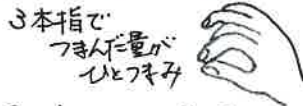 3本指で
つまんだ量が
ひとつまみ